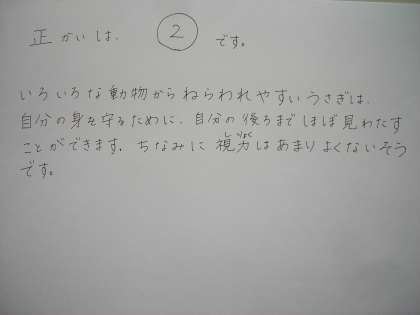 正かいは、 2 です。
いろいろな動物からねらわれやすいうさぎは、
自分の身を守るために、自分の後ろまでほぼ見わたす
ことができます。ちなみに視力はあまりよくないそう
です。
しりょく